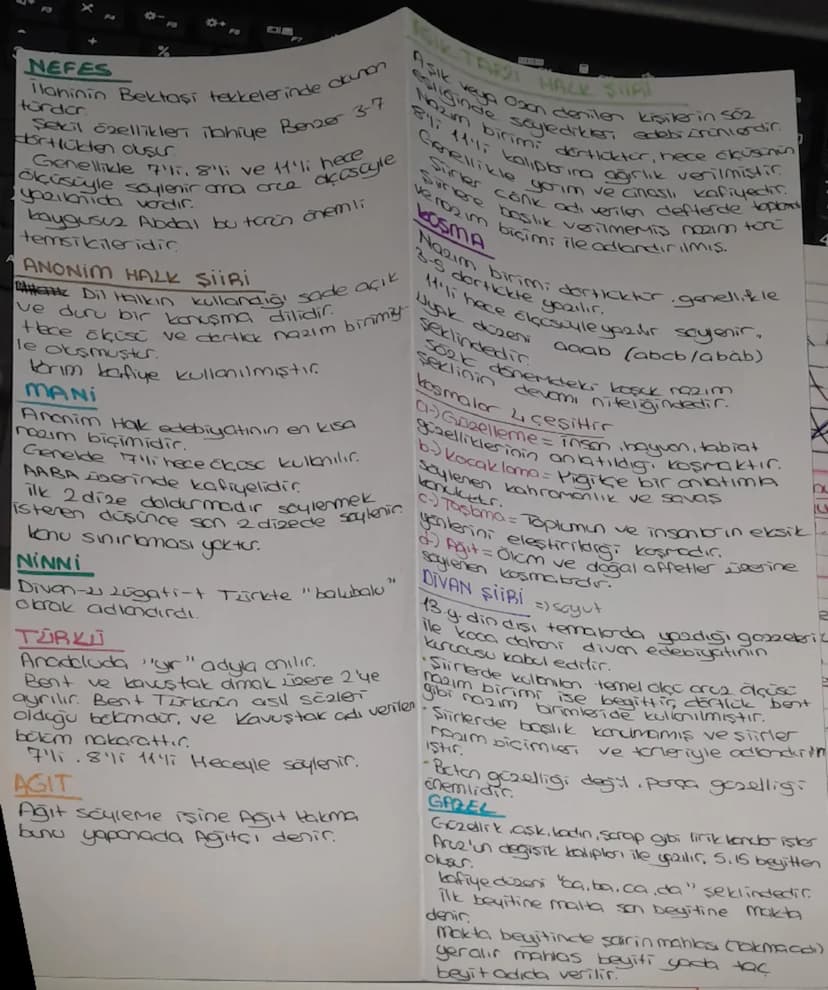 NEFES
ilahinin Bektaşi tekkelerinde okunan
türdür.
Şekil özellikleri ilahiye Benzer 3-7
dörtlükten oluşur.
Genellikle 7'li, 8'li ve 11'li hece
ölçüsüyle söylenir ama aruz ölçüsüyle
yazılanıda vardır.
Kaygusuz Abdal bu türün önemli
temsilcileridir.
ANONİM HALK ŞİİRİ
Dil Halkın kullandığı sade açık
ve duru bir konuşma dilidir.
Hece ölçüsü ve dörtlük nazım birimiy-
le oluşmuştur.
Yarım kafiye kullanılmıştır.
MANİ
Anonim Halk edebiyatının en kısa
nazım biçimidir.
Genelde 7'li hece ölçüsü kullanılır.
AABA üzerinde kafiyelidir.
ilk 2 dize doldurmadır söylenmek
istenen düşünce son 2 dizede söylenir.
konu sınırlaması yoktur.
NİNNİ
Divan-ı Lügati-t Türkte "balubalu"
olarak adlandırdı.
TÜRKÜ
Anadoluda "yır" adıyla anılır.
Bent ve kavuştak olmak üzere 2'ye
ayrılır. Bent Türkünün asıl sözleri
olduğu bölümdür, ve Kavuştak adı verilen
bölüm nakarattır.
7'li, 8'li 11'li Heceyle söylenir.
AGIT
Ağıt söyleme işine Ağıt Yakma
bunu yapanada Ağıtçı denir.
AŞIK TARZI HALK ŞİİRİ
Aşık veya Ozan denilen kişilerin söz
eşliğinde söyledikleri edebi ürünlerdir.
Nazım birimi dörtlüktür, hece ölçüsünün
8'li 11'li kalıplarına ağırlık verilmiştir.
Genellikle yarım ve cinaslı kafiyedir.
Şiirler cönk adı verilen defterde toplandı
Şiirlere başlık verilmemiş nazım türü
ve nazım biçimi ile adlandırılmış.
KOŞMA
Nazım birimi dörtlüktür. genellikle
3-5 dörtlükte yazılır.
11'li hece ölçüsüyle yazılır söylenir.
Uyak düzeni aaab (abcb/abab)
şeklindedir.
Sözlü dönemdeki koşuk nazım
şeklinin devamı niteliğindedir.
Koşmalar 4 çeşittir
a-) Güzelleme = insan, hayvan, tabiat
güzelliklerinin anlatıldığı koşmaktır.
b-) Koçaklama = Yiğitçe bir anlatımla
söylenen kahramanlık ve savaş
konuludur.
c-) Taşlama = Toplumun ve insanların eksik
yönlerini eleştirildiği koşmadır.
d-) Ağıt = Ölüm ve doğal affetler üzerine
söylenen koşmalardır.
DİVAN ŞİİRİ => soyut
13. y din dışı temalarda yazdığı gazzelleri
ile koca dahani divan edebiyatının
kurucusu kabul edilir.
· Şiirlerde kullanılan temel ölçü aruz ölçüsü
nazım birimi ise beyittir, dörtlük bent
gibi nazım birimleride kullanılmıştır.
· Şiirlerde başlık konulmamış ve şiirler
nazım biçimleri ve türleriyle adlandırılm
ıştır.
· Bütün güzelliği değil, parça güzelliği
önemlidir.
GAZEL
Güzellik, aşk, kadın, şarap gibi lirik konular işler
Aruz'un değişik kalıpları ile yazılır, 5,15 beyitten
oluşur.
kafiye düzeni "aa, ba, ca, da" şeklindedir.
ilk beyitine matla son beyitine makta
denir.
makta beyitinde şairin mahlası (takma adı)
yer alır mahlas beyiti yada taç
beyit adıda verilir.